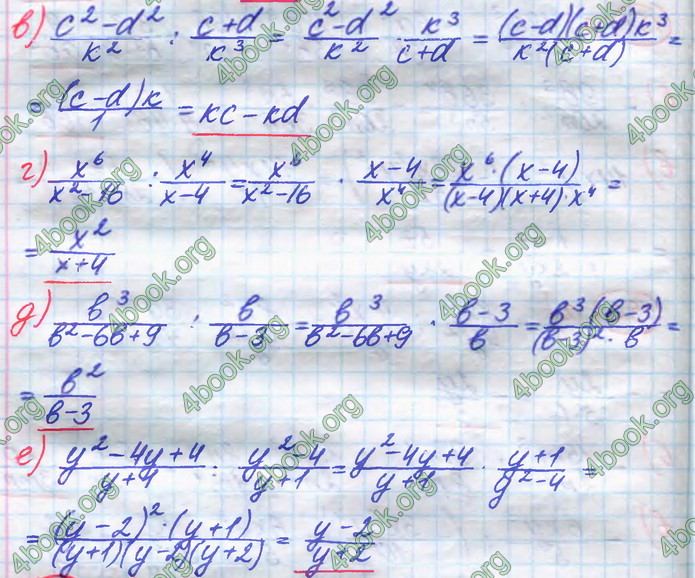 в) (c² - d²)/k² : (c+d)/k³ = (c² - d²)/k² · k³/(c+d) = (c-d)(c+d)k³/k²(c+d) =
= (c-d)k/1 = kc - kd
г) x⁶/(x² - 16) : x⁴/(x-4) = x⁶/(x² - 16) · (x-4)/x⁴ = x⁶·(x-4)/(x-4)(x+4)·x⁴ =
= x²/(x+4)
д) в³/(в² - 6в + 9) : в/(в-3) = в³/(в² - 6в + 9) · (в-3)/в = в³(в-3)/(в-3)²·в =
= в²/(в-3)
е) (y² - 4y + 4)/(y+1) : (y² - 4)/(y+1) = (y² - 4y + 4)/(y+1) · (y+1)/(y² - 4) =
= (y-2)²·(y+1)/(y+1)(y-2)(y+2) = (y-2)/(y+2)
4book.org